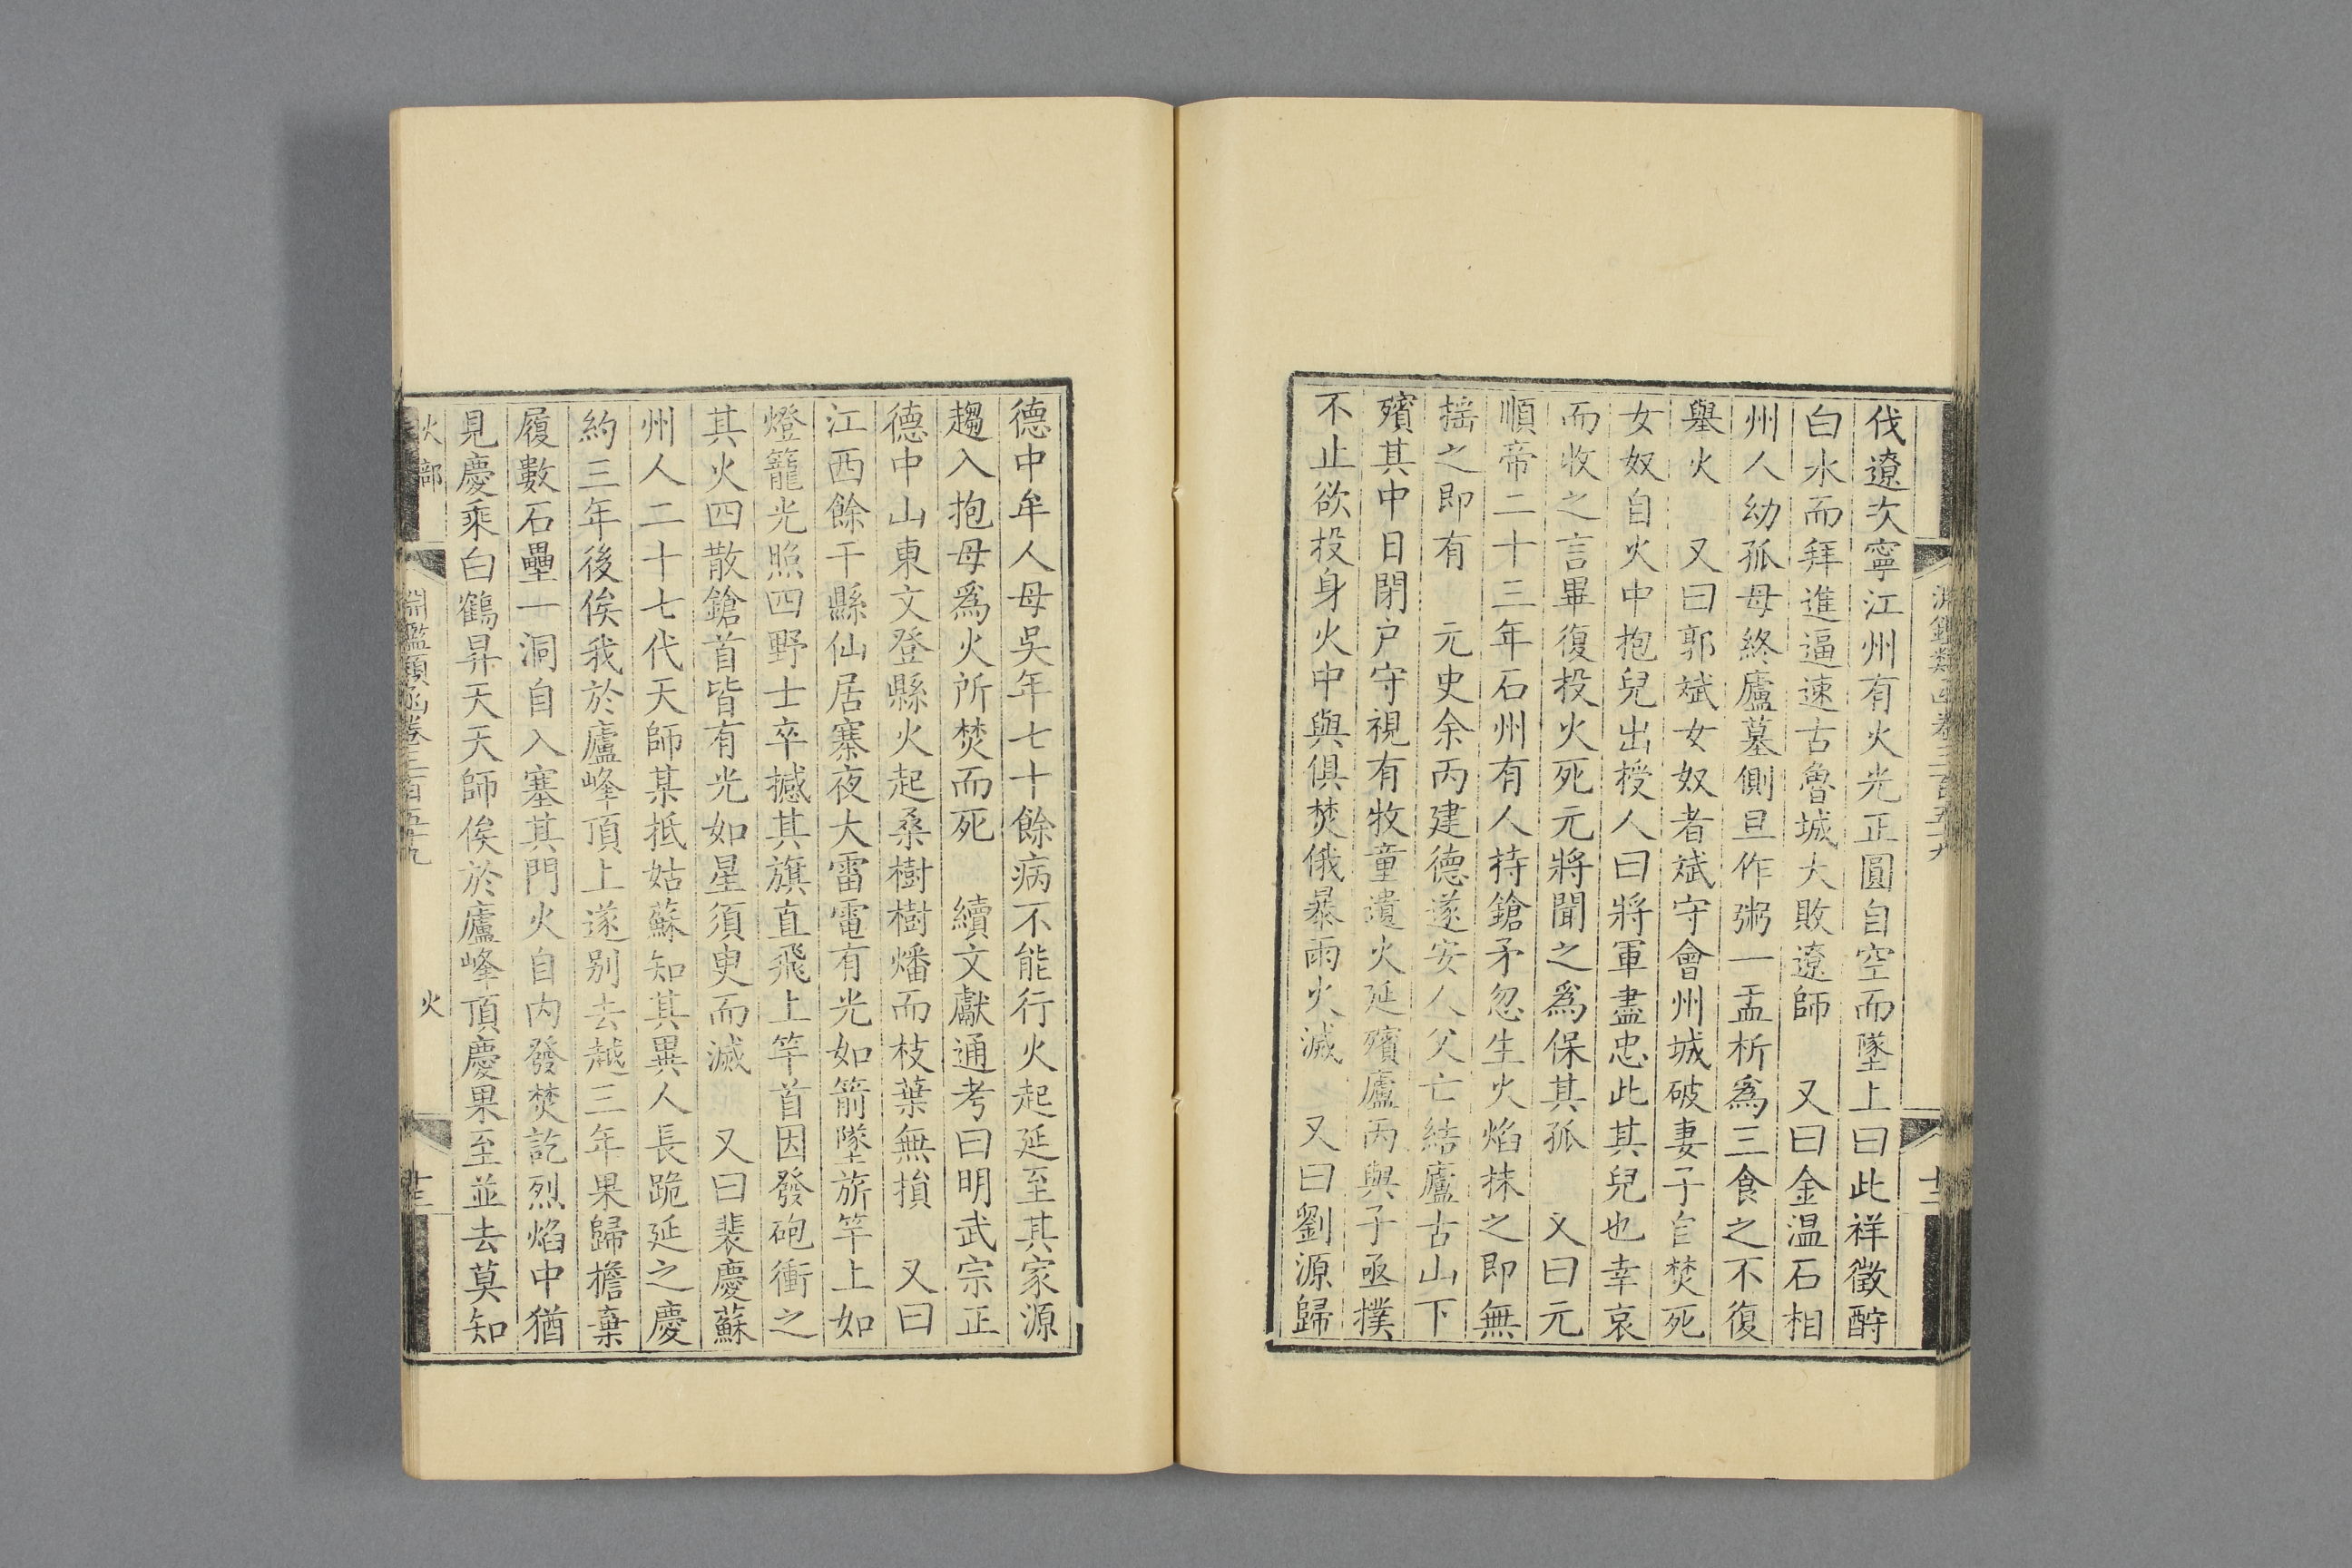 伐遼次寧江州有火光正圓自空而墜上曰此祥徵酹
白水而拜進逼速古魯城大敗遼師　又曰金温石相
州人幼孤母終廬墓側旦作粥一盂析爲三食之不復
舉火　又曰郭斌女奴者斌守會州城破妻子自焚死
女奴自火中抱兒出授人曰將軍盡忠此其兒也幸哀
而收之言畢復投火死元將聞之爲保其孤　又曰元
順帝二十三年石州有人持鎗矛忽生火焰抹之即無
揺之即有　元史余丙建德遂安人父亡結廬古山下
殯其中日閉户守視有牧童遺火延殯廬丙與子亟撲
不止欲投身火中與俱焚俄暴雨火滅　又曰劉源歸
德中牟人母吳年七十餘病不能行火起延至其家源
趨入抱母爲火所焚而死　續文獻通考曰明武宗正
德中山東文登縣火起桑樹樹燔而枝葉無損　又曰
江西餘干縣仙居寨夜大雷電有光如箭墜旂竿上如
燈籠光照四野士卒撼其旗直飛上竿首因發砲衝之
其火四散鎗首皆有光如星須臾而滅　又曰裴慶蘇
州人二十七代天師某抵姑蘇知其異人長跪延之慶
約三年後俟我於廬峰頂上遂别去越三年果歸擔棄
履數石壘一洞自入塞其門火自内發焚訖烈焰中猶
見慶乘白鶴昇天天師俟於廬峰頂慶果至並去莫知
火部
淵鑑類函卷三百五十九
火
十三